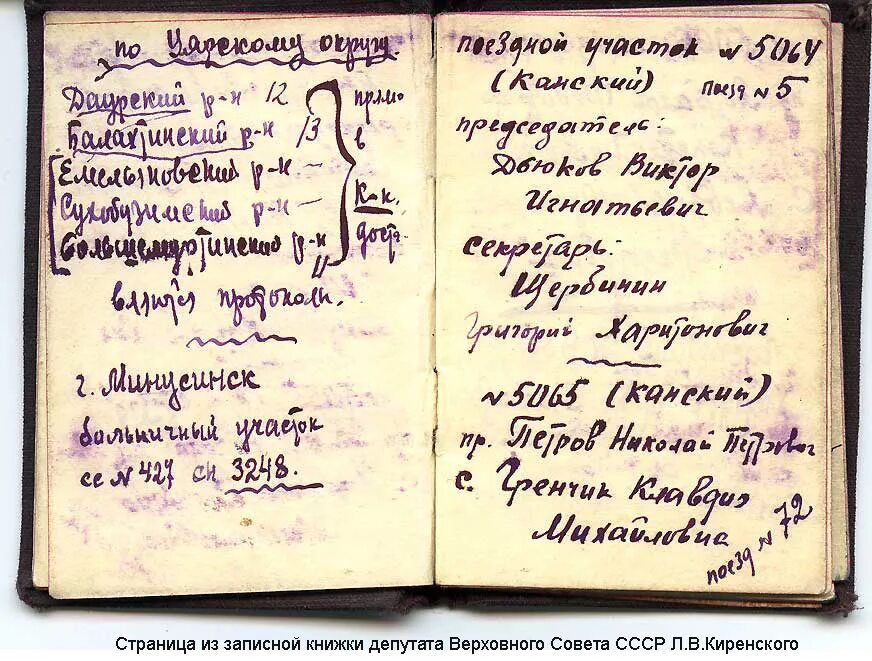 по Уярскому округу.
Даурский р-н 12
Балахтинский р-н 13
Емельяновский р-н —
Сухобузимский р-н —
Большемуртинский р-н
прям.
в
К-к.
дост.
взять протоколы.
г. Минусинск
больничный участок
се № 427 сн 3248.
поездной участок № 5064
(Канский) поезд № 5
председатель:
Дьюков Виктор
Игнатьевич
секретарь:
Щербинин
Григорий Харитонович
№ 5065 (Канский)
пр. Петров Николай Петрович
с. Гренчик Клавдия
Михайловна
поезд № 72
Страница из записной книжки депутата Верховного Совета СССР Л.В.Киренского